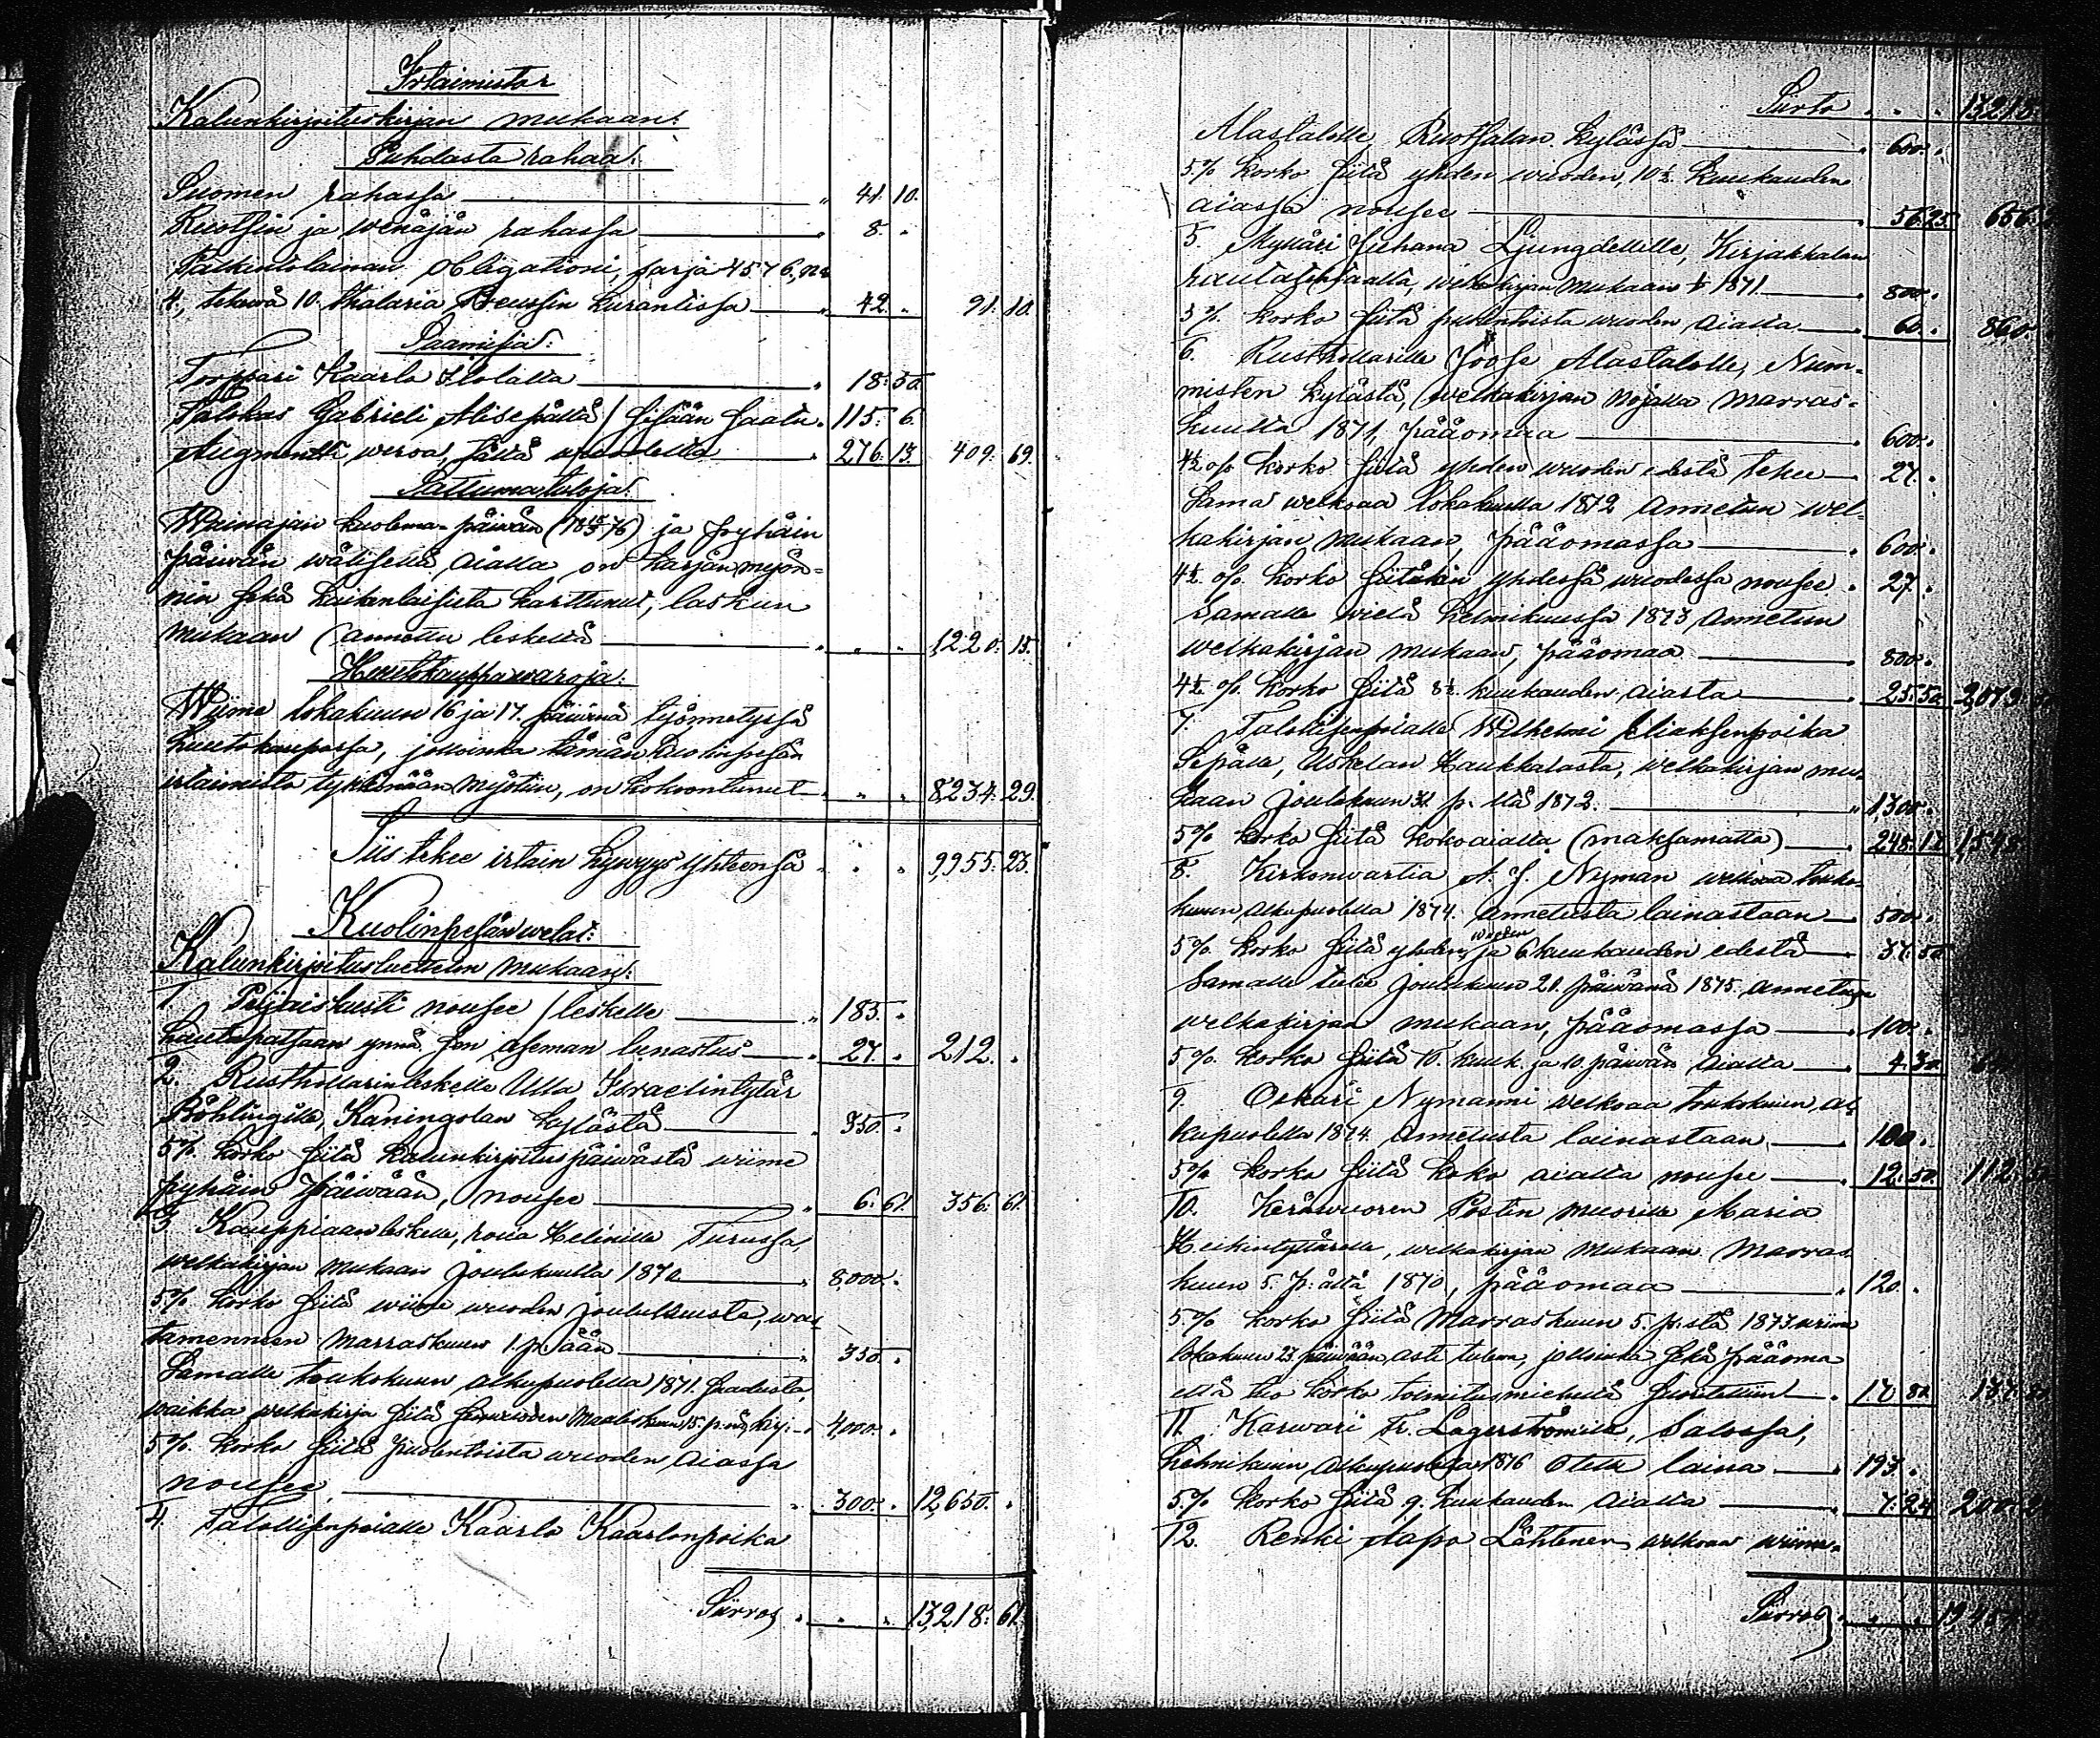 Irtaimistoa
Kalunkirjoituskirjan mukaan:
Puhdasta rahaa:
Suomen rahassa " 41. 10.
Ruotsin ja wenäjän rahassa " 8. "
Palkintolainan obligationi, sarja 4576, No
4, tekewä 10. thalaria Preussin kurantissa " 42. " 91. 10.
Saamisia:
Torppari Kaarlo Ilolalta " 18. 50.
Talokas Gabrieli Alisepältä / sisään saatu. 115. 6.
Augmentti weroa, tältä uudelta " 276. 13. 409. 69.
Sattumatuloja:
Wainajan kuolema-päiwän ja pyhäin
päiwän wälisellä aialla on karjan myön-
nin sekä kaikenlaisista karttunut, laskun
mukaan (annettu leskeltä " " " 1,220. 15.
Huutokauppawaroja:
Wiime lokakuun 16 ja 17. päiwinä työnnetyssä
huutokaupassa, jolloinka tämän kuolinpesän
irtaimisto tykkönään myötiin, on kokoontunut " " " 8,234. 29.
Siis tekee irtain hywyys yhteensä " " " 9,955. 23.
Kuolinpesän welat:
Kalunkirjoitusluettelon mukaan:
1. nousee / leskelle " 185. "
hautapatsaan ynnä sen aseman lunastus " 27. " 212. "
2. Rusthollarinleskelle Ulla Israelintytär
Böhlingille, Kaningolan kylästä " 350. "
5% korko siitä kalunkirjoituspäiwästä wiime
pyhäin päiwään, nousee " 6. 61. 356. 61.
3. Kauppiaanleskelle, rouwa Helinille Turussa,
welkakirjan mukaan joulukuulta 1870 " 8,000. "
5% korko siitä wiime wuoden joulukuusta, was-
tamennen marraskuun 1. p:ään " 350. "
Samalle toukokuun alkupuolella 1871. saadusta,
waikka welkakirja siitä maaliskuun 15. p:nä kirj. 4,000. "
5% korko siitä puolentoista wuoden aiassa
nousee " 300. " 12,650. "
4. Talollisenpoialle Kaarlo Kaarlonpoika
Siirros " " " 13,218. 61.
Siirto " " " 13,218.
Alastalolle, Ruotsalan kylässä " 600. "
5% korko siitä yhden wuoden, 10½ kuukauden
aiassa nousee " 56. 25. 656.
5. Mylläri Juhana Ljungdellille, Kirjakkalan
rautatehtaalta, welkakirjan mukaan 1871 " 800. "
5% korko siitä puolentoista wuoden aialta " 60. " 860.
6. Rusthollarille Joose Alastalolle, Num-
misten kylästä, (welkakirjan nojalla marras-
kuulta 1871, pääomaa " 600. "
4½% korko siitä yhden wuoden edestä tekee " 27. "
Sama welkoaa lokakuulla 1872 annetun wel-
kakirjan mukaan, pääomassa " 600. "
4½% korko siitäkin yhdessä wuodessa nousee " 27. "
Samalle wielä helmikuussa 1873 annetun
welkakirjan mukaan, pääomaa " 800. "
4½% korko siitä 8½ kuukauden aiasta " 25. 50. 2,079.
7. Talollisenpoialle Wilhelmi Eliaksenpoika
Sepälle, Uskelan Haukkalasta, welkakirjan mu-
kaan joulukuun 31 p:ltä 1872. " 1,300. "
5% korko siitä kokoaialta (maksamatta) " 248.
8. Kirkonwartia A. J. Nyman welkoaa touko-
kuun alkupuolella 1874. annetusta lainastaan 500. "
5% korko siitä yhden wuoden ja 6 kuukauden edestä 37. 50.
Samalle tulee joulukuun 21. päiwänä 1875. annetun
welkakirjan mukaan, pääomassa " 100. "
5% korko siitä 10. kuuk. ja 10. päiwän aialta " 4. 30.
9. Oskari Nymanni welkoaa toukokuun al-
kupuolella 1874. annetusta lainastaan " 100. "
5% korko siitä koko aialta nousee " 12. 50. 112.
10. Keräwuoren Postin muorille Maria
Heikintyttärelle, welkakirjan mukaan marras-
kuun 5. p:ältä 1870, pääomaa " 120. "
5% korko siitä marraskuun 5. p:stä 1873 wiime
lokakuun 23. päiwään asti tulewa, jolloinka sekä pääoma
että tuo korko toimitusmieheltä suoritettiin 17. 82. 137.
11. Karwari Fr. Lagerströmille, Salossa,
helmikuun alkupuolella 1876 otettu laina " 193. "
5% korko siitä 9. kuukauden aialta " 7. 24. 200.
12. Renki Aapo Lähtenen welkoaa wiime-
Siirros " " "